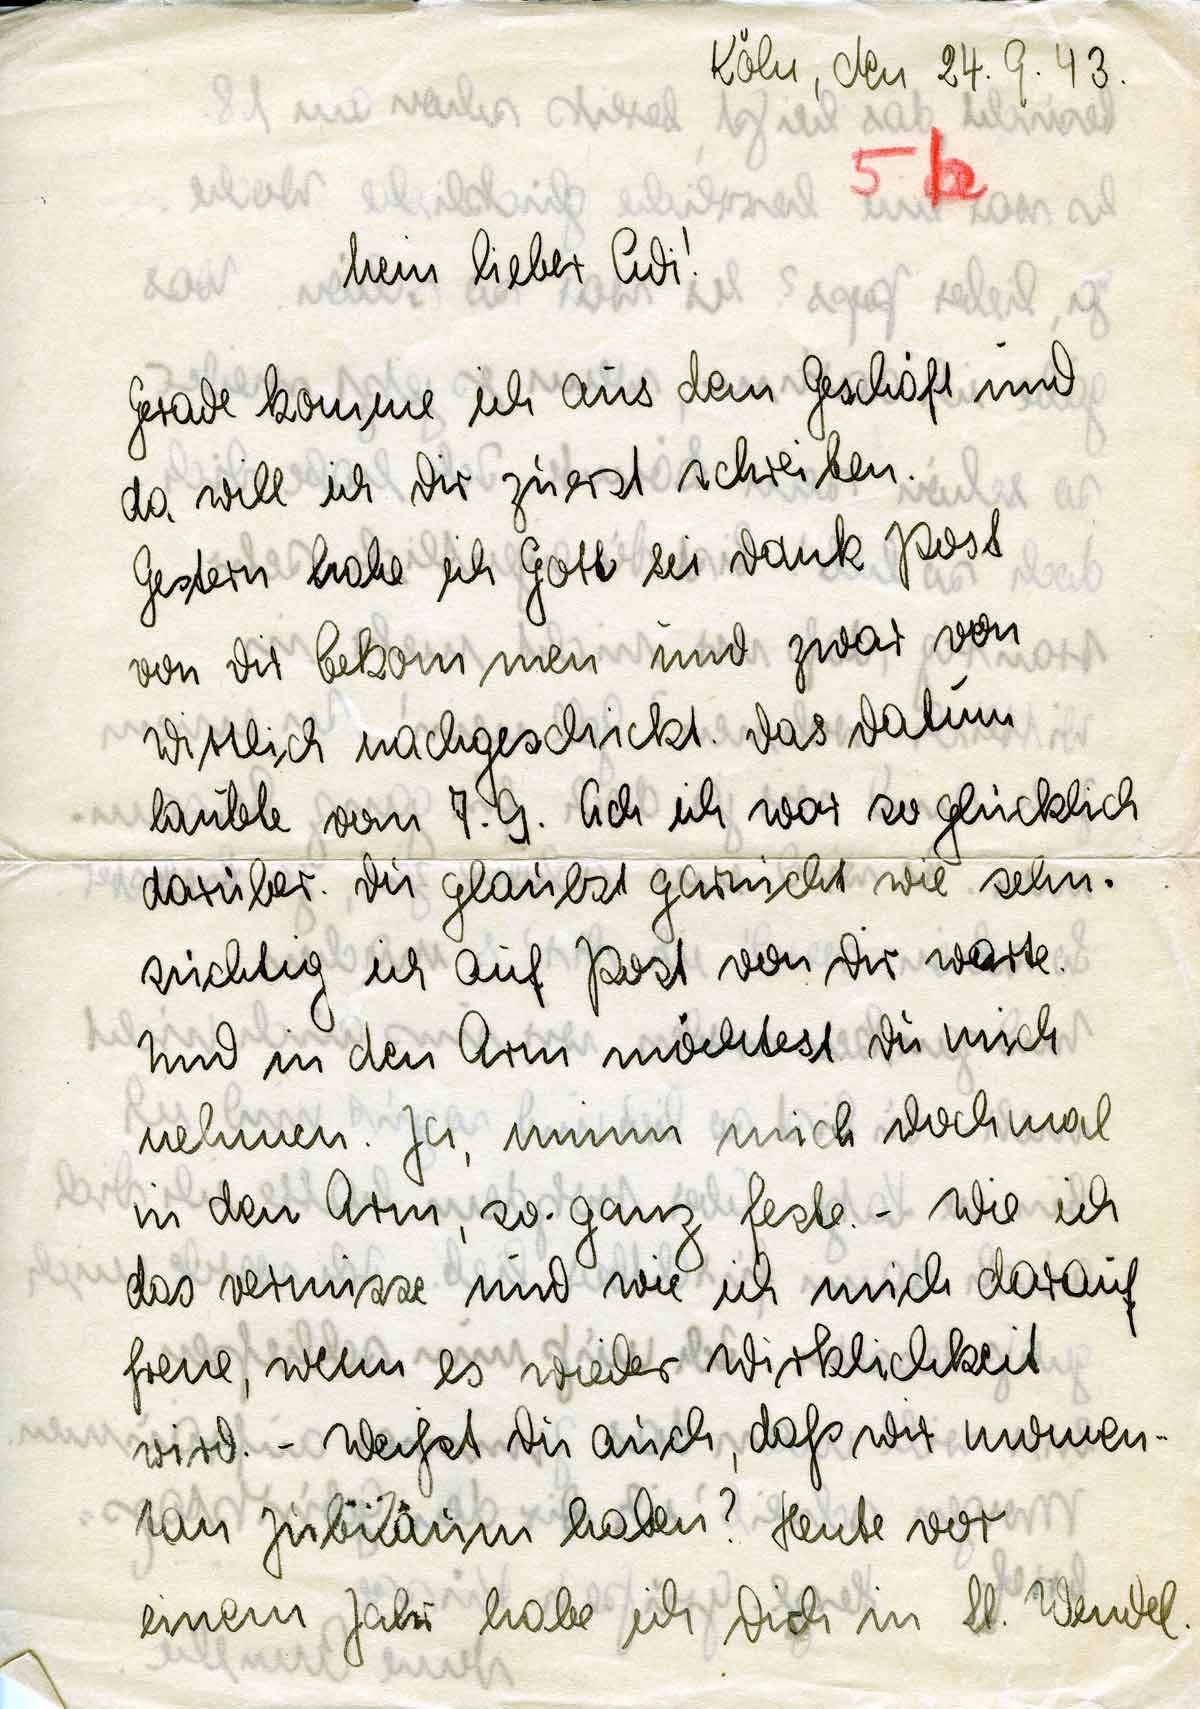 Köln, den 24.9.43.
5
Mein lieber Adi!
Gerade komme ich aus dem Geschäft und
da will ich Dir zuerst schreiben.
Gestern habe ich Gott sei Dank Post
von Dir bekommen und zwar von
Wittlich nachgeschickt. Das Datum
lautete vom 7.9. Ach ich war so glücklich
darüber. Du glaubst garnicht wie sehn-
süchtig ich auf Post von Dir warte.
Und in den Arm möchtest Du mich
nehmen. Ja, nimm mich doch mal
in den Arm, so ganz feste. - Wie ich
das vermisse und wie ich mich darauf
freue, wenn es wieder Wirklichkeit
wird. - Weißt Du auch, daß wir momen-
tan Jubiläum haben? Heute vor
einem Jahr habe ich Dich in St. Wendel